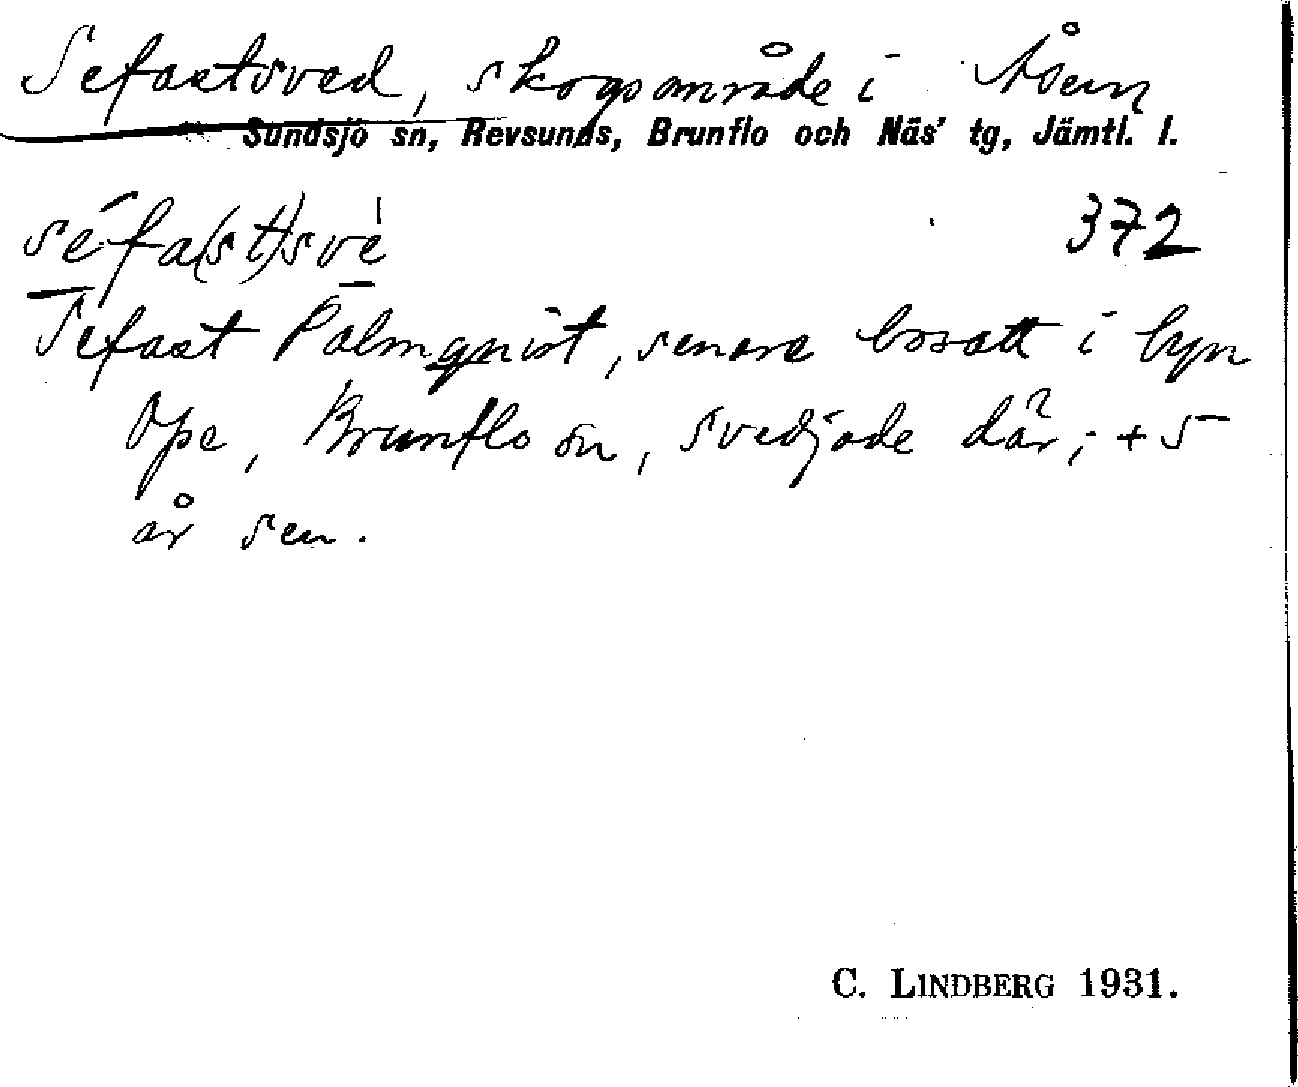 Sefastsved, skogsområde i Åsen
Sundsjö sn, Revsunds, Brunflo och Näs' tg, Jämtl. l.
séfa(st)svè
372
Sefast Palmqvist, senare bosatt i byn
Ope, Brunflo sn, svedjade där; + 5
år sen.
C. LINDBERG 1931.